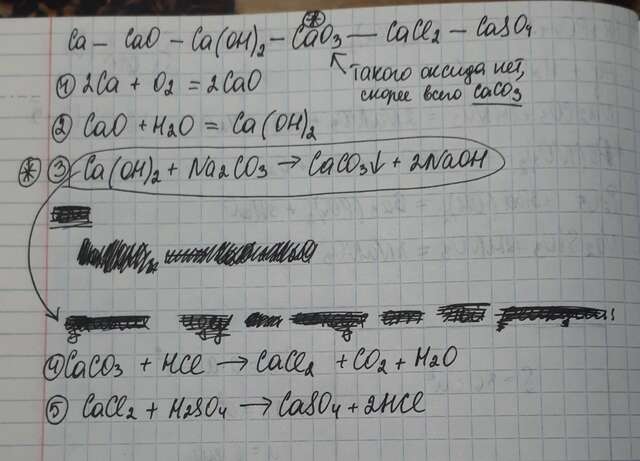 Ca – CaO – Ca(OH)₂ – CaO₃ — CaCl₂ – CaSO₄
*
такого оксида нет,
скорее всего CaCO₃
① 2Ca + O₂ = 2CaO
② CaO + H₂O = Ca(OH)₂
* ③ Ca(OH)₂ + Na₂CO₃ → CaCO₃↓ + 2NaOH
④ CaCO₃ + HCl → CaCl₂ + CO₂ + H₂O
⑤ CaCl₂ + H₂SO₄ → CaSO₄ + 2HCl